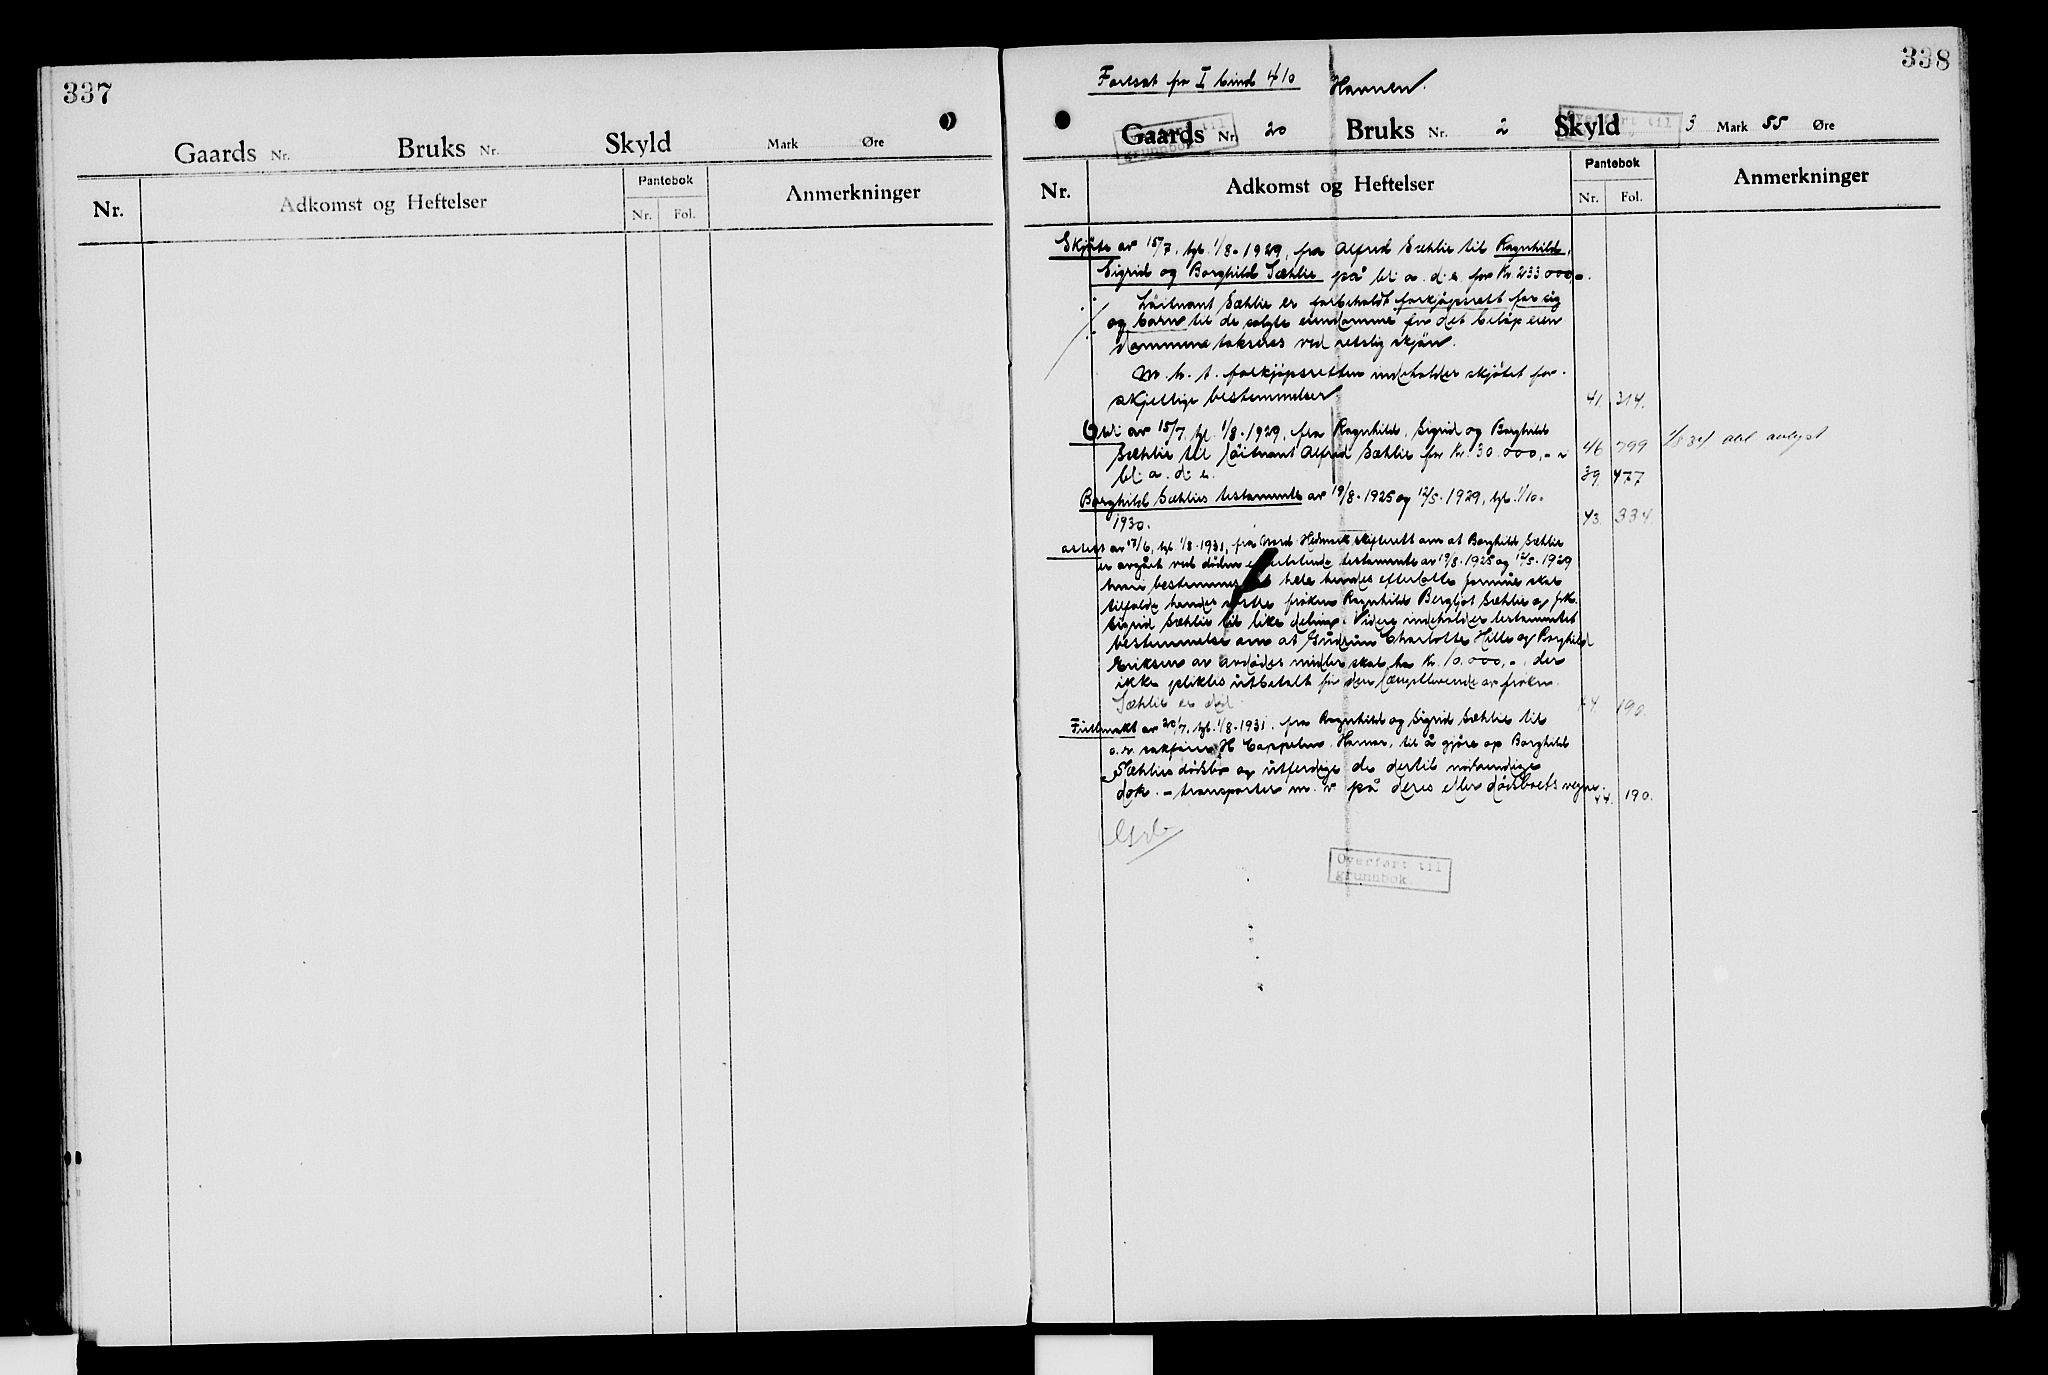 337
Gaards Nr. Bruks Nr. Skyld Mark Øre
Nr. Adkomst og Heftelser Pantebok Nr. Fol. Anmerkninger
338
Fortsat fra I bind 410 Havnen.
Gaards Nr. 20 Bruks Nr. 2 Skyld 3 Mark 55 Øre
Overført til grunnbok
Overført til
Nr. Adkomst og Heftelser Pantebok Nr. Fol. Anmerkninger
Skjøte av 15/7, tgl. 1/8-1929, fra Alfred Sæhlie til Ragnhild,
Sigrid og Borghild Sæhlie på bl. a. d. e. for Kr. 233 000,-.
Løitnant Sæhlie er forbeholdt forkjøpsrett for sig
og barn til de solgte eiendomme for det beløp eien
dommene takseres ved retslig skjøn.
M. h. t. forkjøpsretten indeholder skjøtet for-
skjellige bestemmelser. 41. 314.
Obl. av 15/7, tgl. 1/8-1929, fra Ragnhild, Sigrid og Borghild
Sæhlie til Løitnant Alfred Sæhlie for Kr. 30.000,- i 46 799 1/8 34 avlyst
bl. a. d. e. 39. 477
Borghild Sæhlies testamente av 19/8-1925 og 12/5-1929, tgl. 1/10-
1930. 43. 334.
Attest av 17/6, tgl. 1/8-1931, fra Nord Hedmark skifterett om at Borghild Sæhlie
er avgått ved døden efterlatende testamente av 19/8-1925 og 12/5-1929
hvori bestemmes at hele hendes efterlatte formue skal
tilfalde hendes søstre frøken Ragnhild Bergljot Sæhlie og frk.
Sigrid Sæhlie til like deling. Videre indeholder testamentet
bestemmelse om at Gudrun Charlotte Hille og Borghild
Eriksen av avdødes midler skal ha Kr. 10.000,-, der
ikke pliktes utbetalt før den længstlevende av frøkn.
Sæhlie er død. 44. 190.
Fullmakt av 20/7, tgl. 1/8-1931. fra Ragnhild og Sigrid Sæhlie til
o.r. sakfører H Cappelen, Hamar, til å gjøre op Borghild
Sæhlies dødsbo og utferdige de dertil nødvendige
dok. - transporter m. v. på deres eller dødsboets vegne. 44. 190.
Overført til
grunnbok.